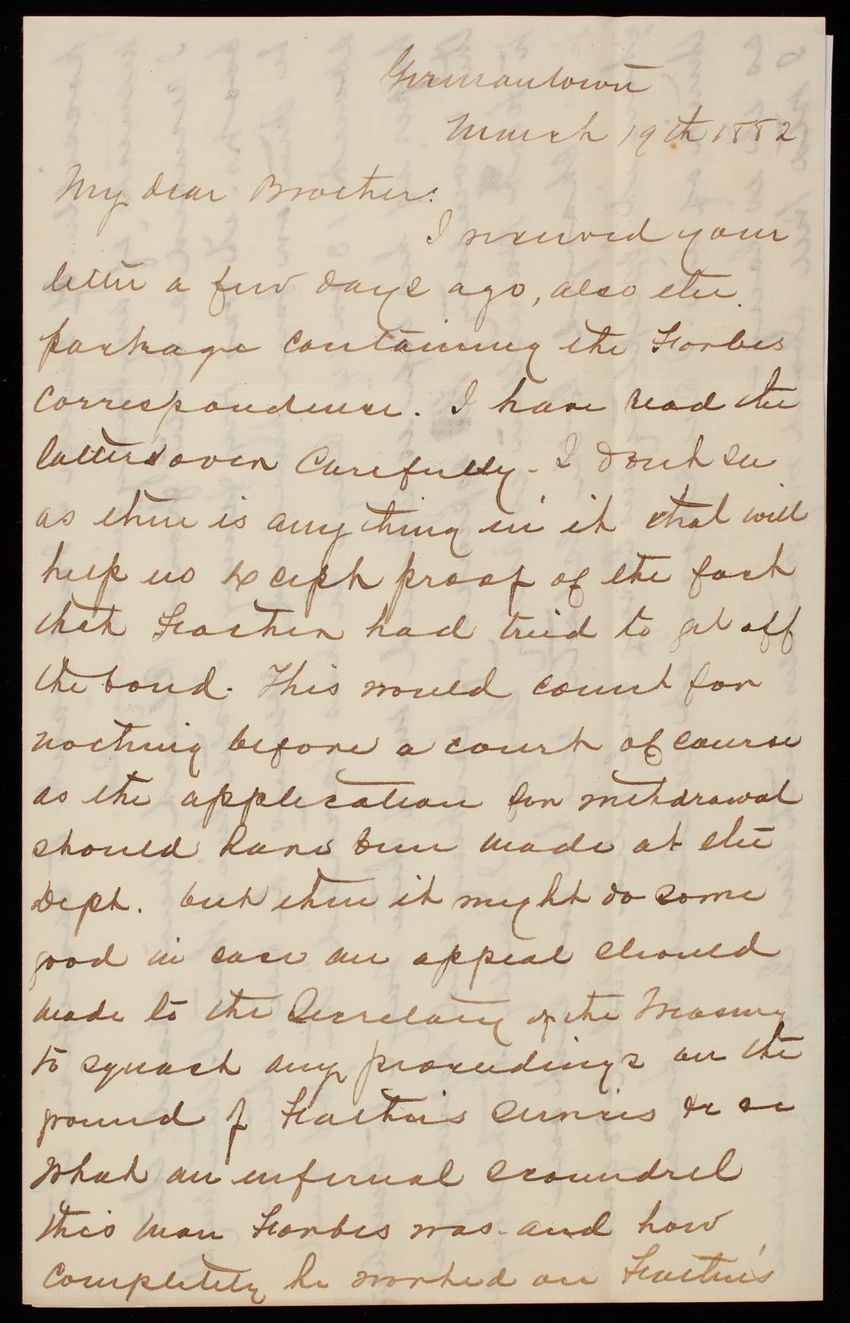 Germantown
March 19th 1882
My dear Brother:
I received your
letter a few days ago, also the
package containing the Forbes
correspondence. I have read the
letters over carefully - I dont see
as there is any thing in it that will
help us except proof of the fact
that Father had tried to get off
the bond. This would count for
nothing before a court of course
as the application for withdrawal
should have been made at the
Dept. but then it might do some
good in case an appeal should
made to the Secretary of the Treasury
to squash any proceedings on the
ground of Father's services &c &c
What an infernal scoundrel
this man Forbes was - and how
completely he worked on Father's